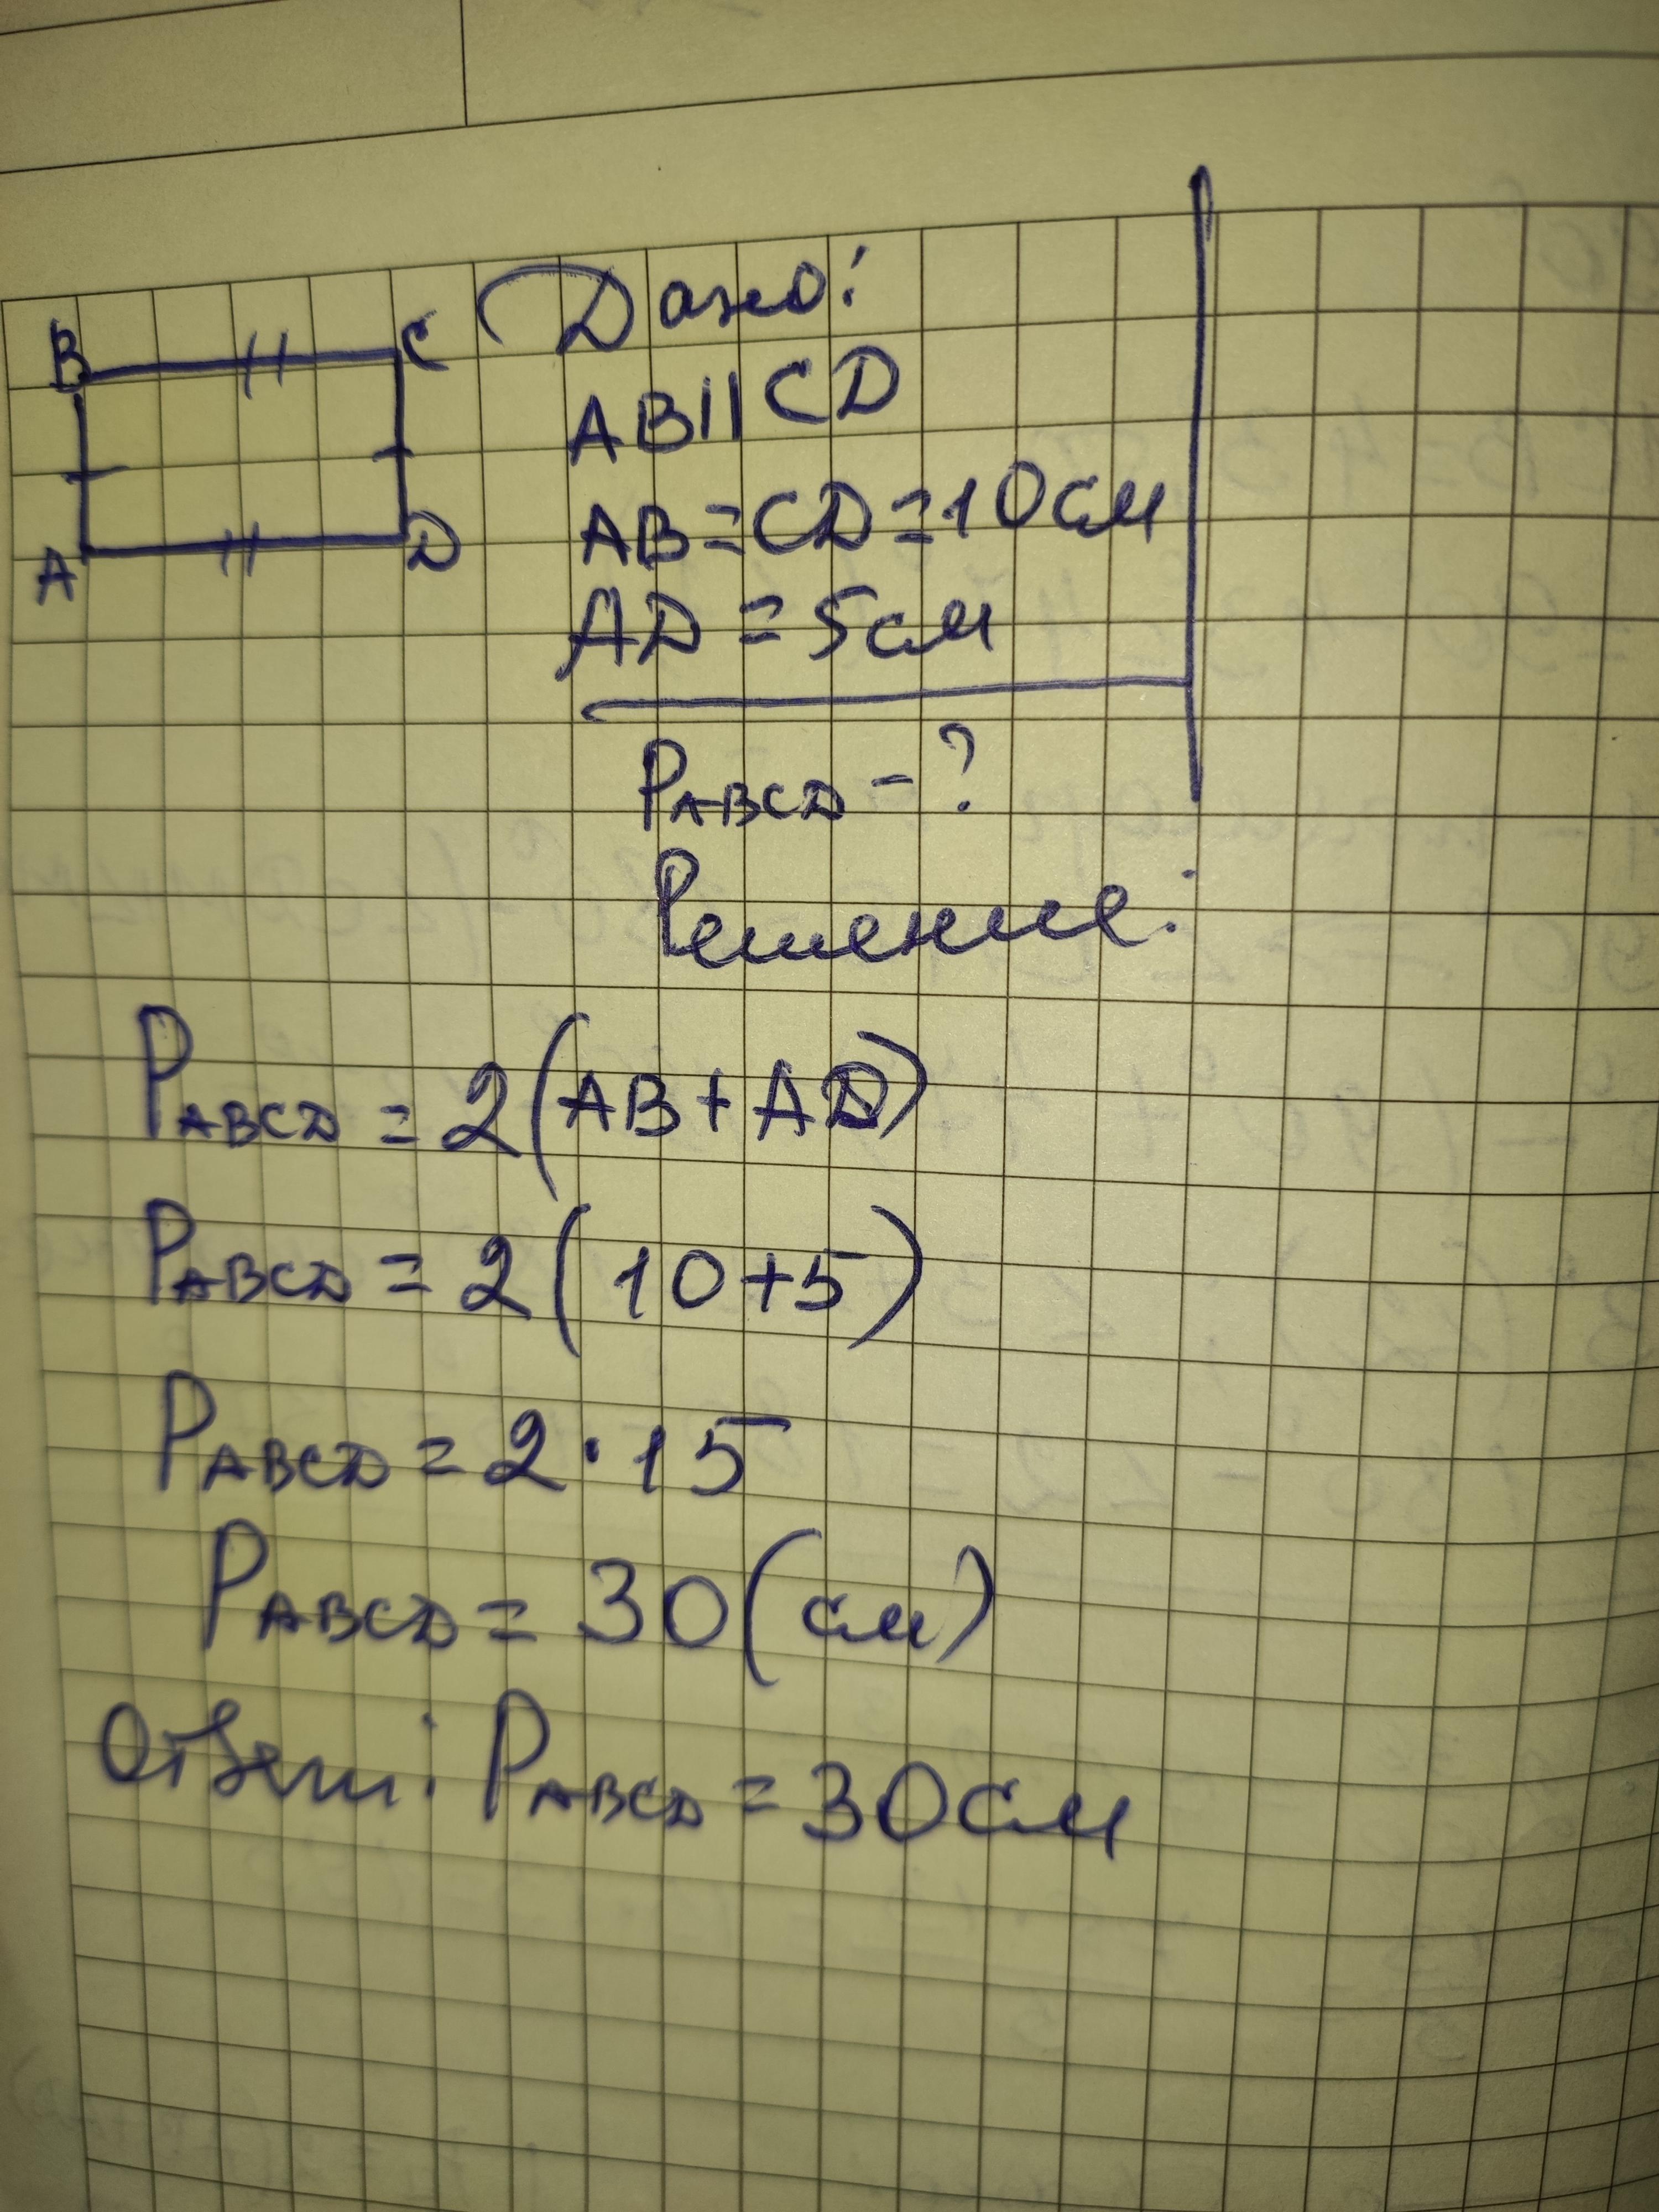 B C
A D
Дано:
AB||CD
AB=CD=10см
AD=5см
PABCD-?
Решение:
PABCD=2(AB+AD)
PABCD=2(10+5)
PABCD=2·15
PABCD=30(см)
Ответ: PABCD=30см